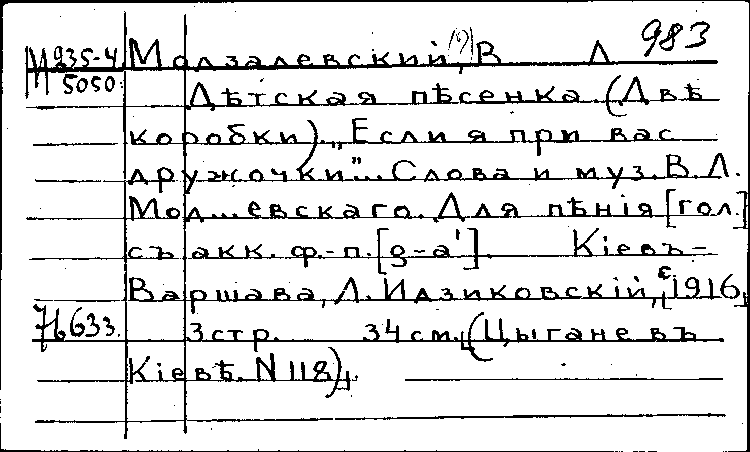 983
М 935-4 Модзалевский,(?) В Л
5050
Дѣтская пѣсенка. (Двѣ
коробки). „Если я при вас
дружочки"... Слова и муз. В. Л.
Мод...евскаго. Для пѣнія [гол.]
съ акк. ф.-п. [g-a']. Кіевъ-
Варшава, Л. Идзиковскій, [с 1916]
76633. 3 стр. 34 см. (Цыгане въ
Кіевѣ. N 118).